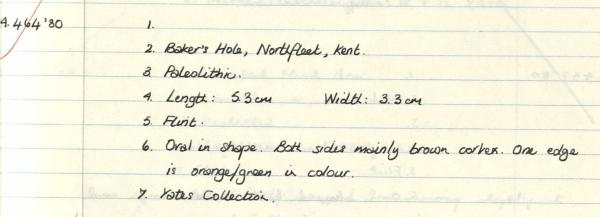 A.464'80
1.
2. Baker's Hole, Northfleet, Kent.
3. Paleolithic.
4. Length: 5.3cm Width: 3.3cm
5. Flint.
6. Oval in shape. Both sides mainly brown cortex. One edge
is orange/green in colour.
7. Yates Collection.